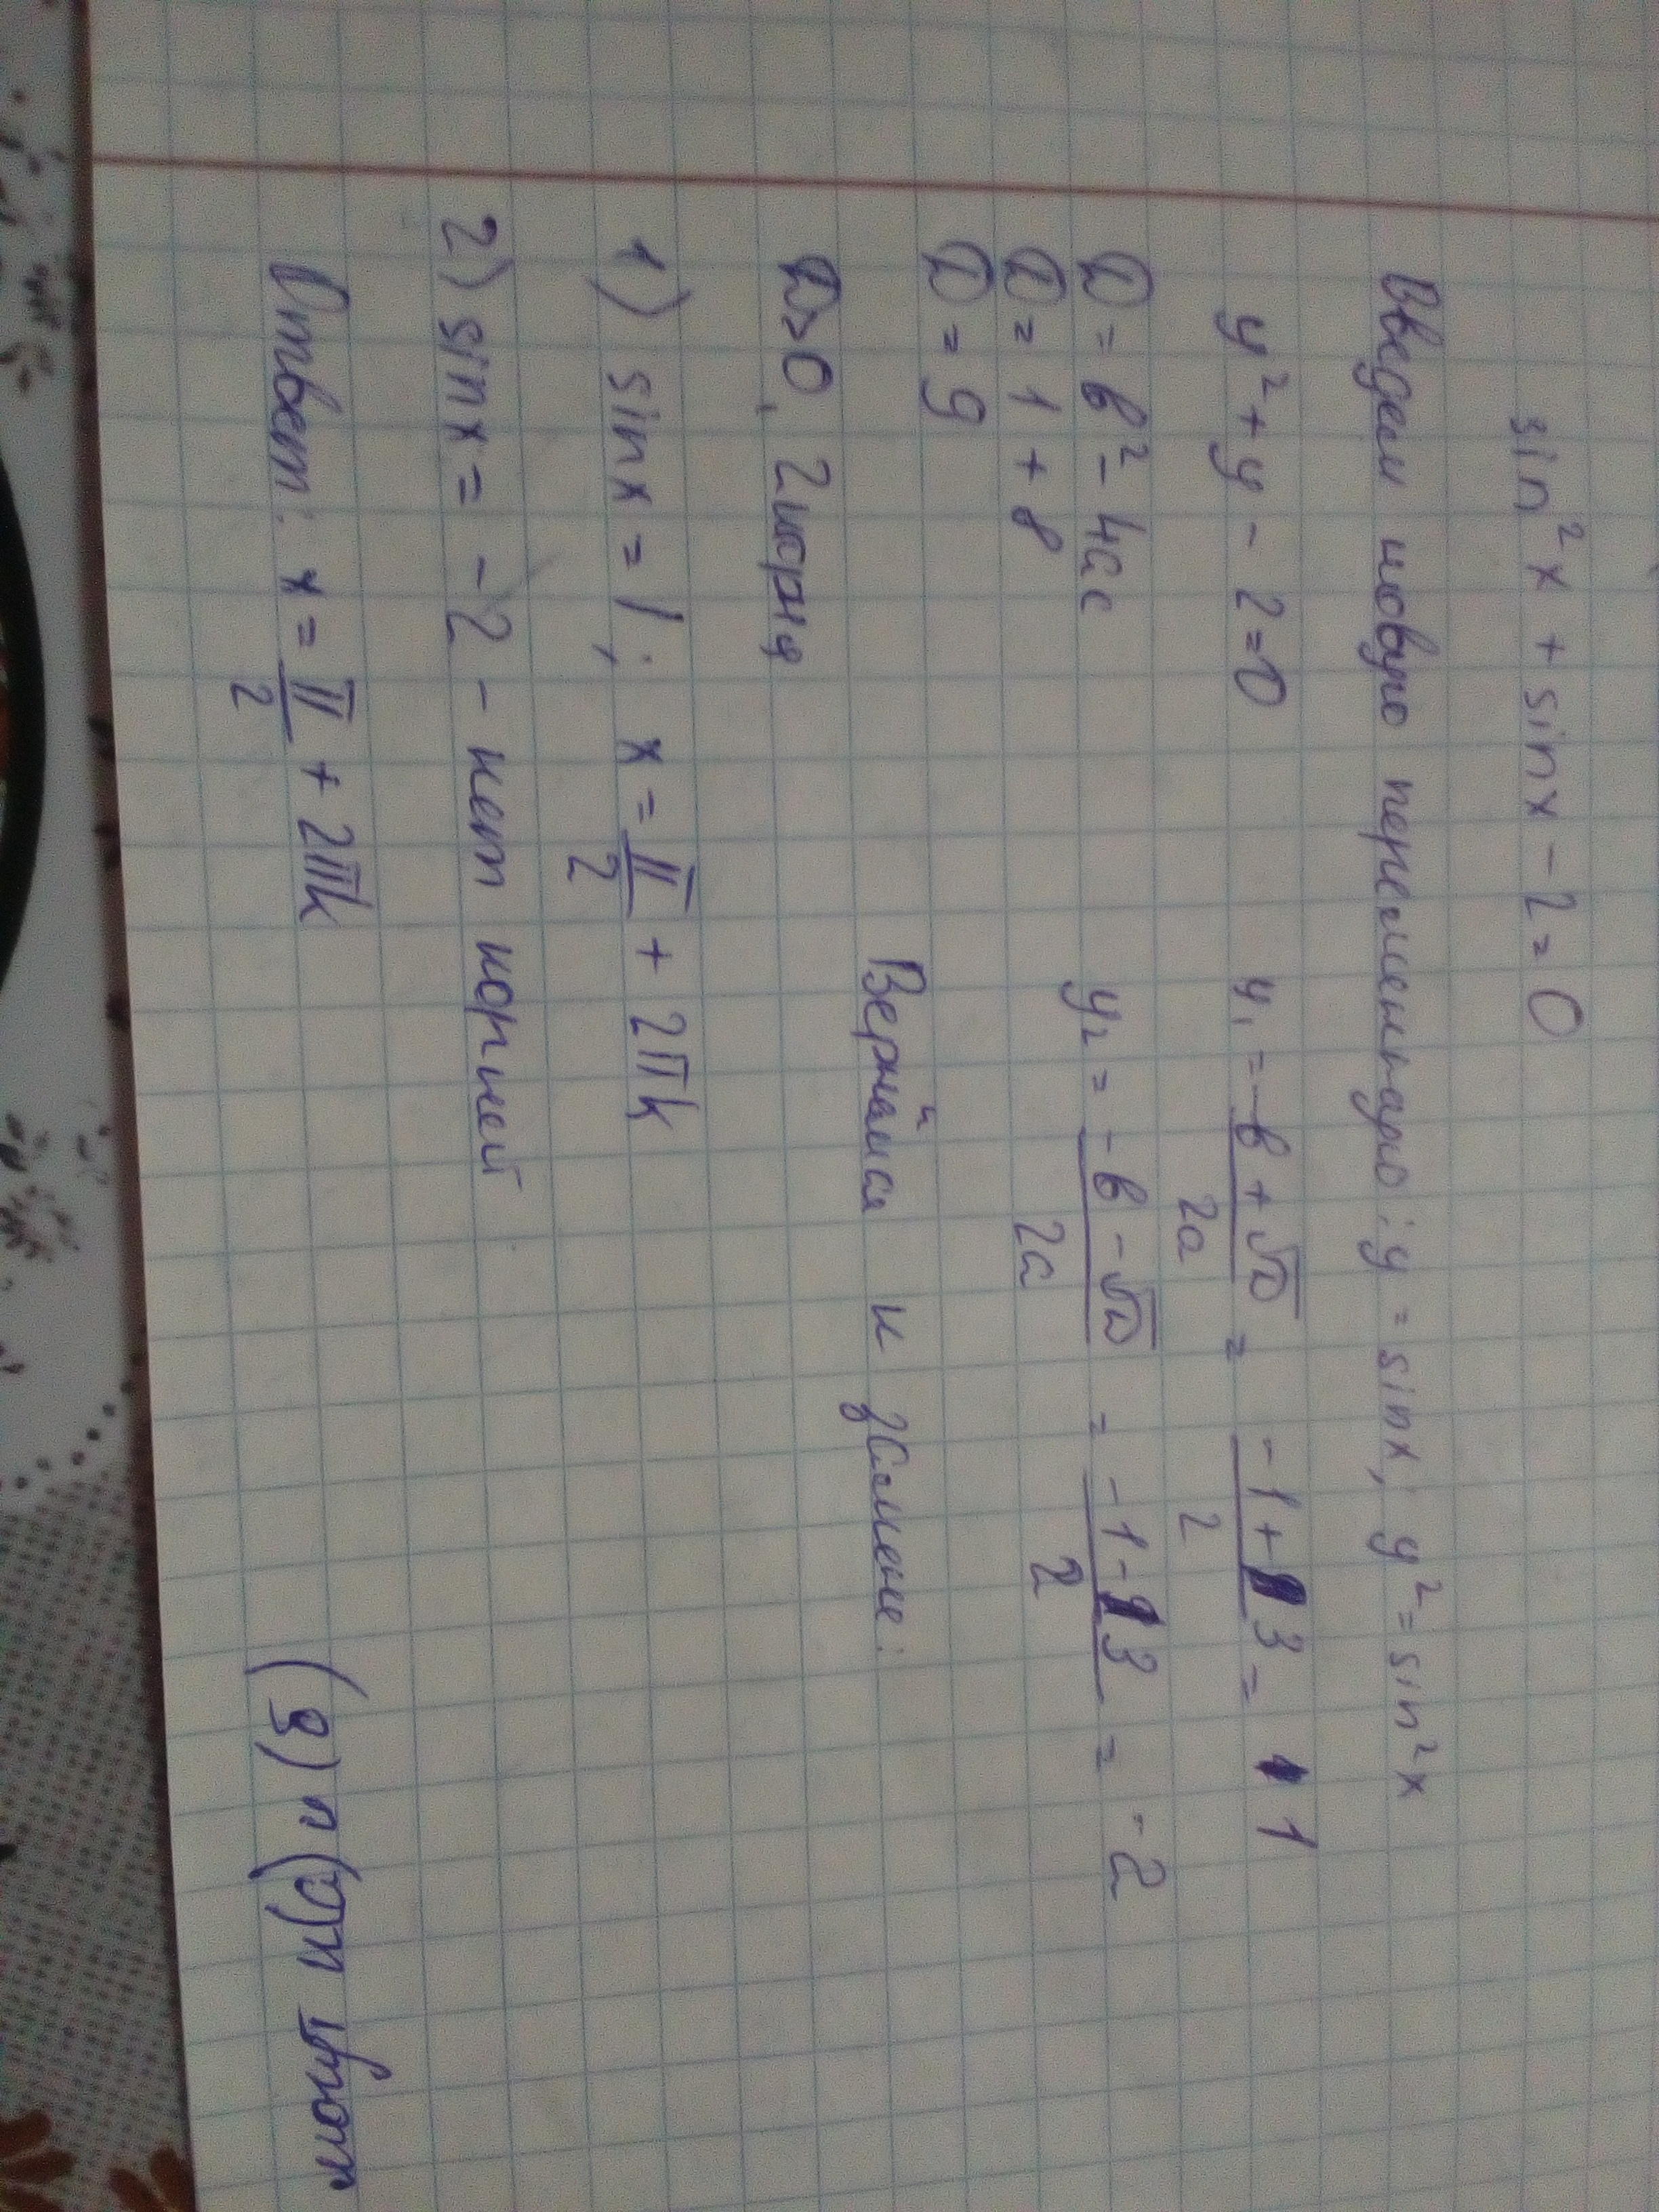 sin²x + sinx - 2 = 0
Введем новую переменную: y = sinx; y² = sin²x
y² + y - 2 = 0
y₁ = -в + √D / 2a = -1 + 3 / 2 = 1
D = в² - 4ac
D = 1 + 8
D = 9
y₂ = -в - √D / 2a = -1 - 3 / 2 = -2
D>0, 2 корня
Вернёмся к замене:
1) sinx = 1; x = π/2 + 2πk
2) sinx = -2 - нет корней
Ответ: x = π/2 + 2πk